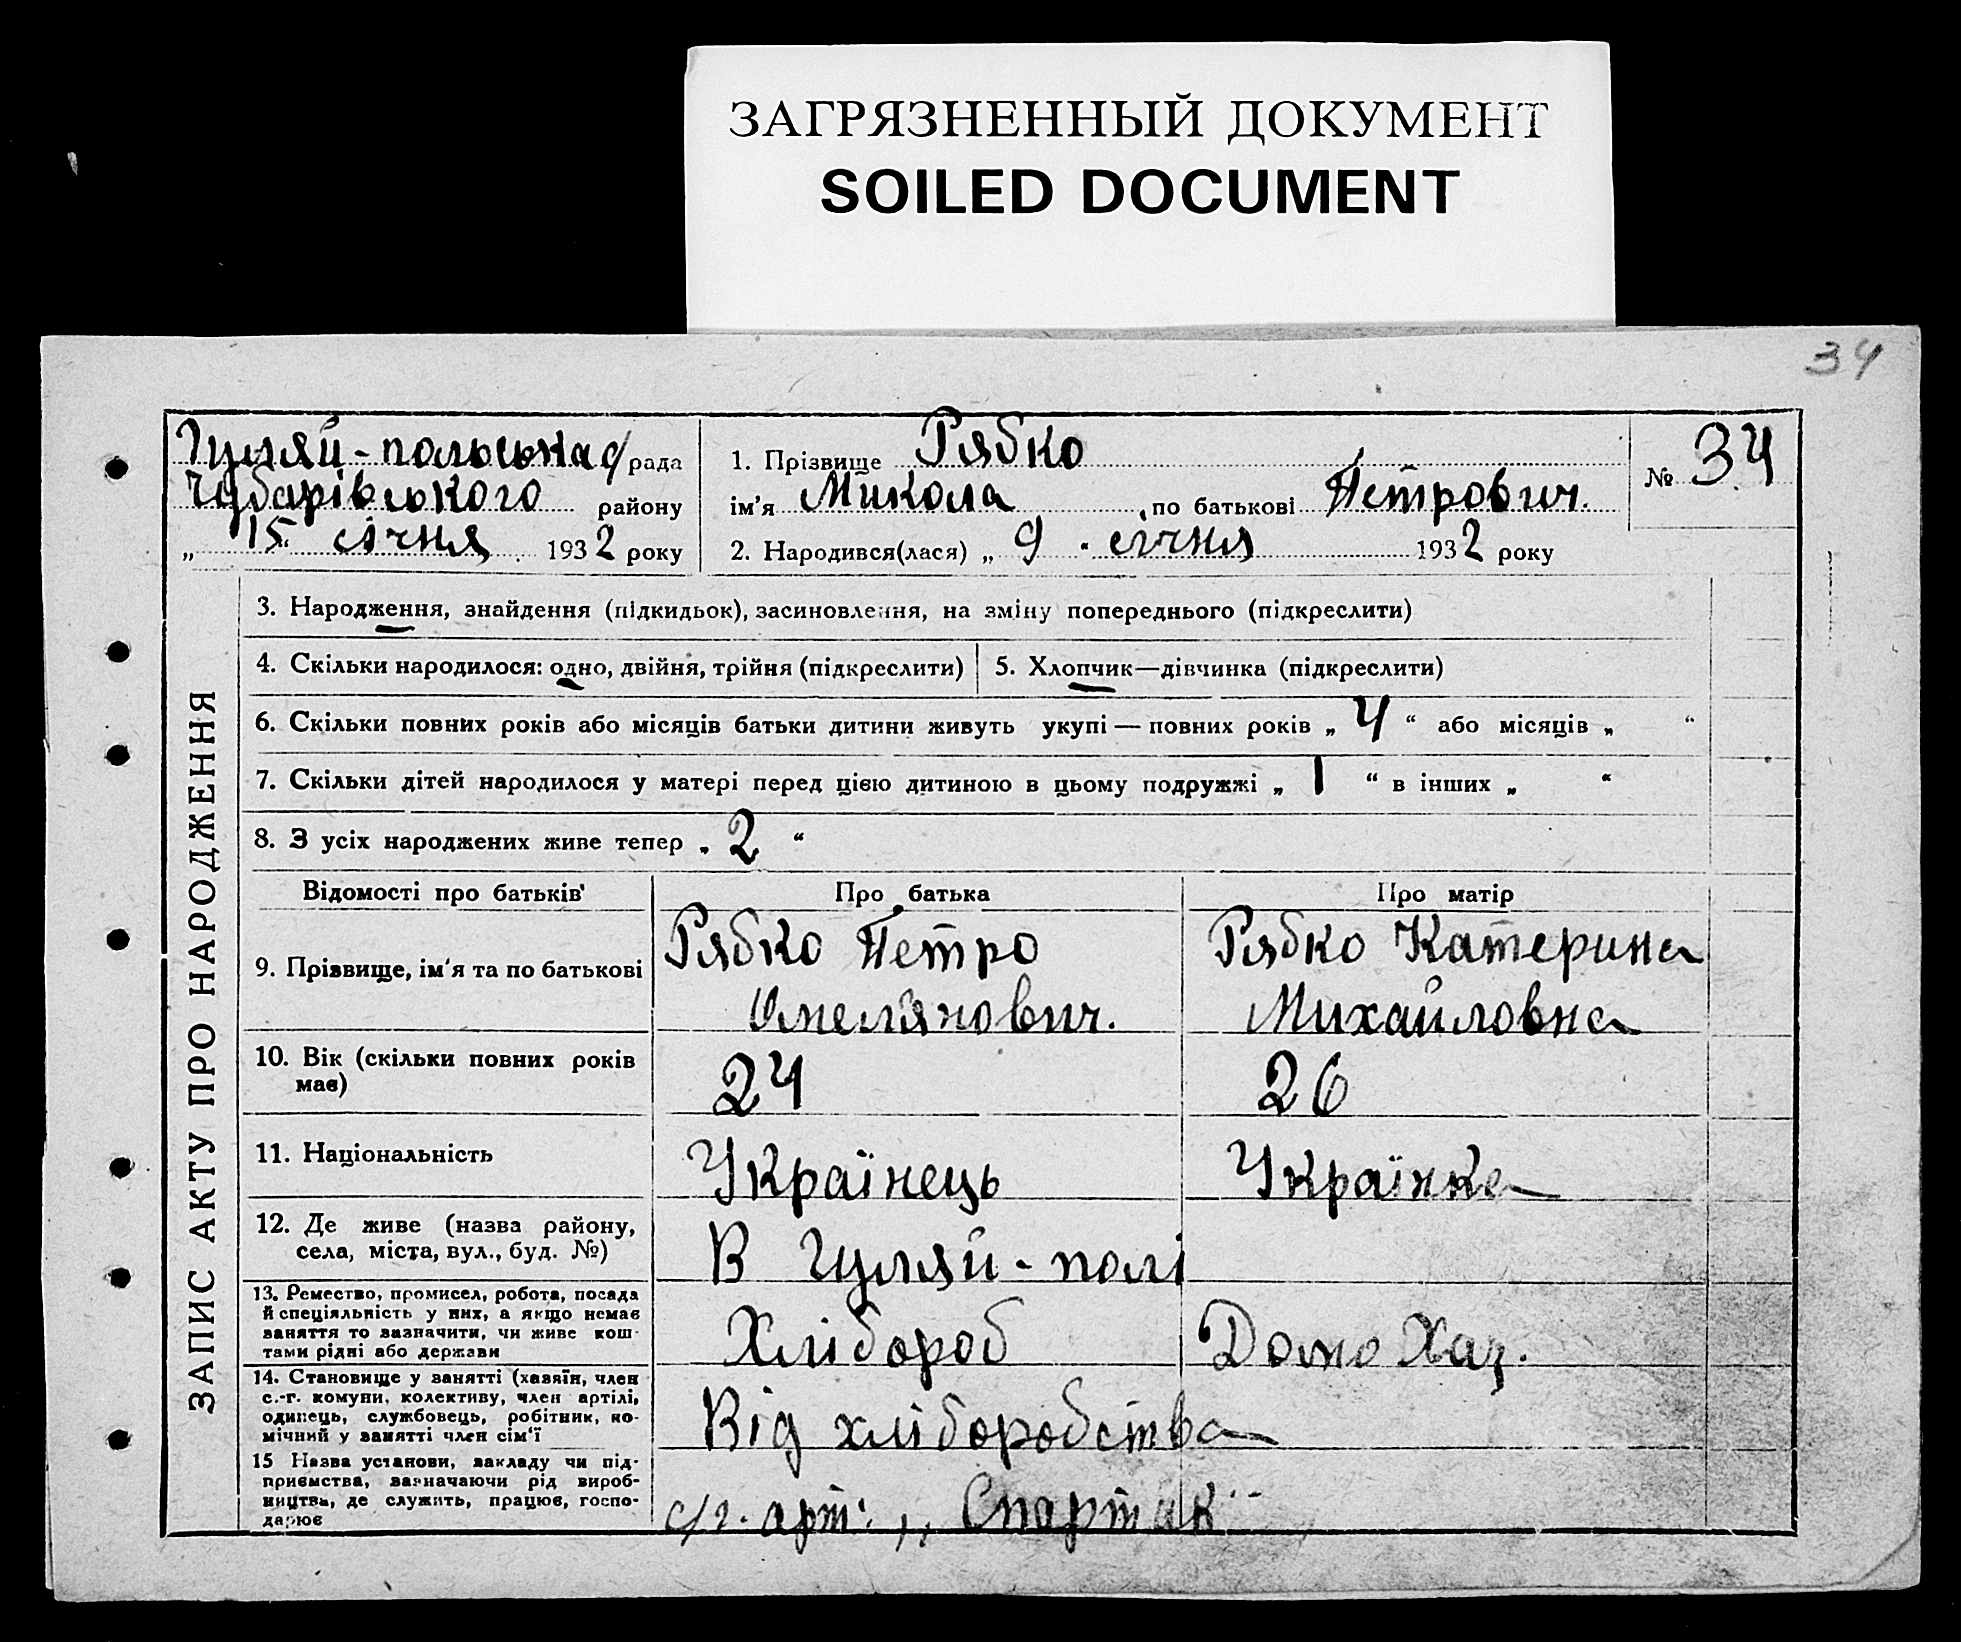 ЗАГРЯЗНЕННЫЙ ДОКУМЕНТ
SOILED DOCUMENT
34
Гуляй-польська с/рада
Чубарівського району
„15“ січня 1932 року
1. Прізвище Рябко
ім'я Микола, по батькові Петрович.
2. Народився(лася) „9“ січня 1932 року
№ 34
ЗАПИС АКТУ ПРО НАРОДЖЕННЯ
3. Народження, знайдення (підкидьок), засиновлення, на зміну попереднього (підкреслити)
4. Скільки народилося: одно, двійня, трійня (підкреслити)
5. Хлопчик—дівчинка (підкреслити)
6. Скільки повних років або місяців батьки дитини живуть укупі — повних років „4“ або місяців „ “
7. Скільки дітей народилося у матері перед цією дитиною в цьому подружжі „1“ в інших „ “
8. З усіх народжених живе тепер „2“
Відомості про батьків
Про батька
Про матір
9. Прізвище, ім'я та по батькові
Рябко Петро
Омелянович.
Рябко Катерина
Михайловна
10. Вік (скільки повних років
має)
24
26
11. Національність
Українець
Українка
12. Де живе (назва району,
села, міста, вул., буд. №)
В Гуляй-полі
13. Ремество, промисел, робота, посада
й спеціяльність у них, а якщо немає
заняття то зазначити, чи живе кош-
тами рідні або держави
Хлібороб
Домо Хаз.
14. Становище у занятті (хазяїн, член
с.-г. комуни, колективу, член артілі,
одинець, службовець, робітник, по-
мічний у занятті член сім'ї
Від хліборобства
15 Назва установи, закладу чи під-
приємства, зазначаючи рід вироб-
ництва, де служить, працює, госпо-
дарює
с/г. арт. „Спартак“